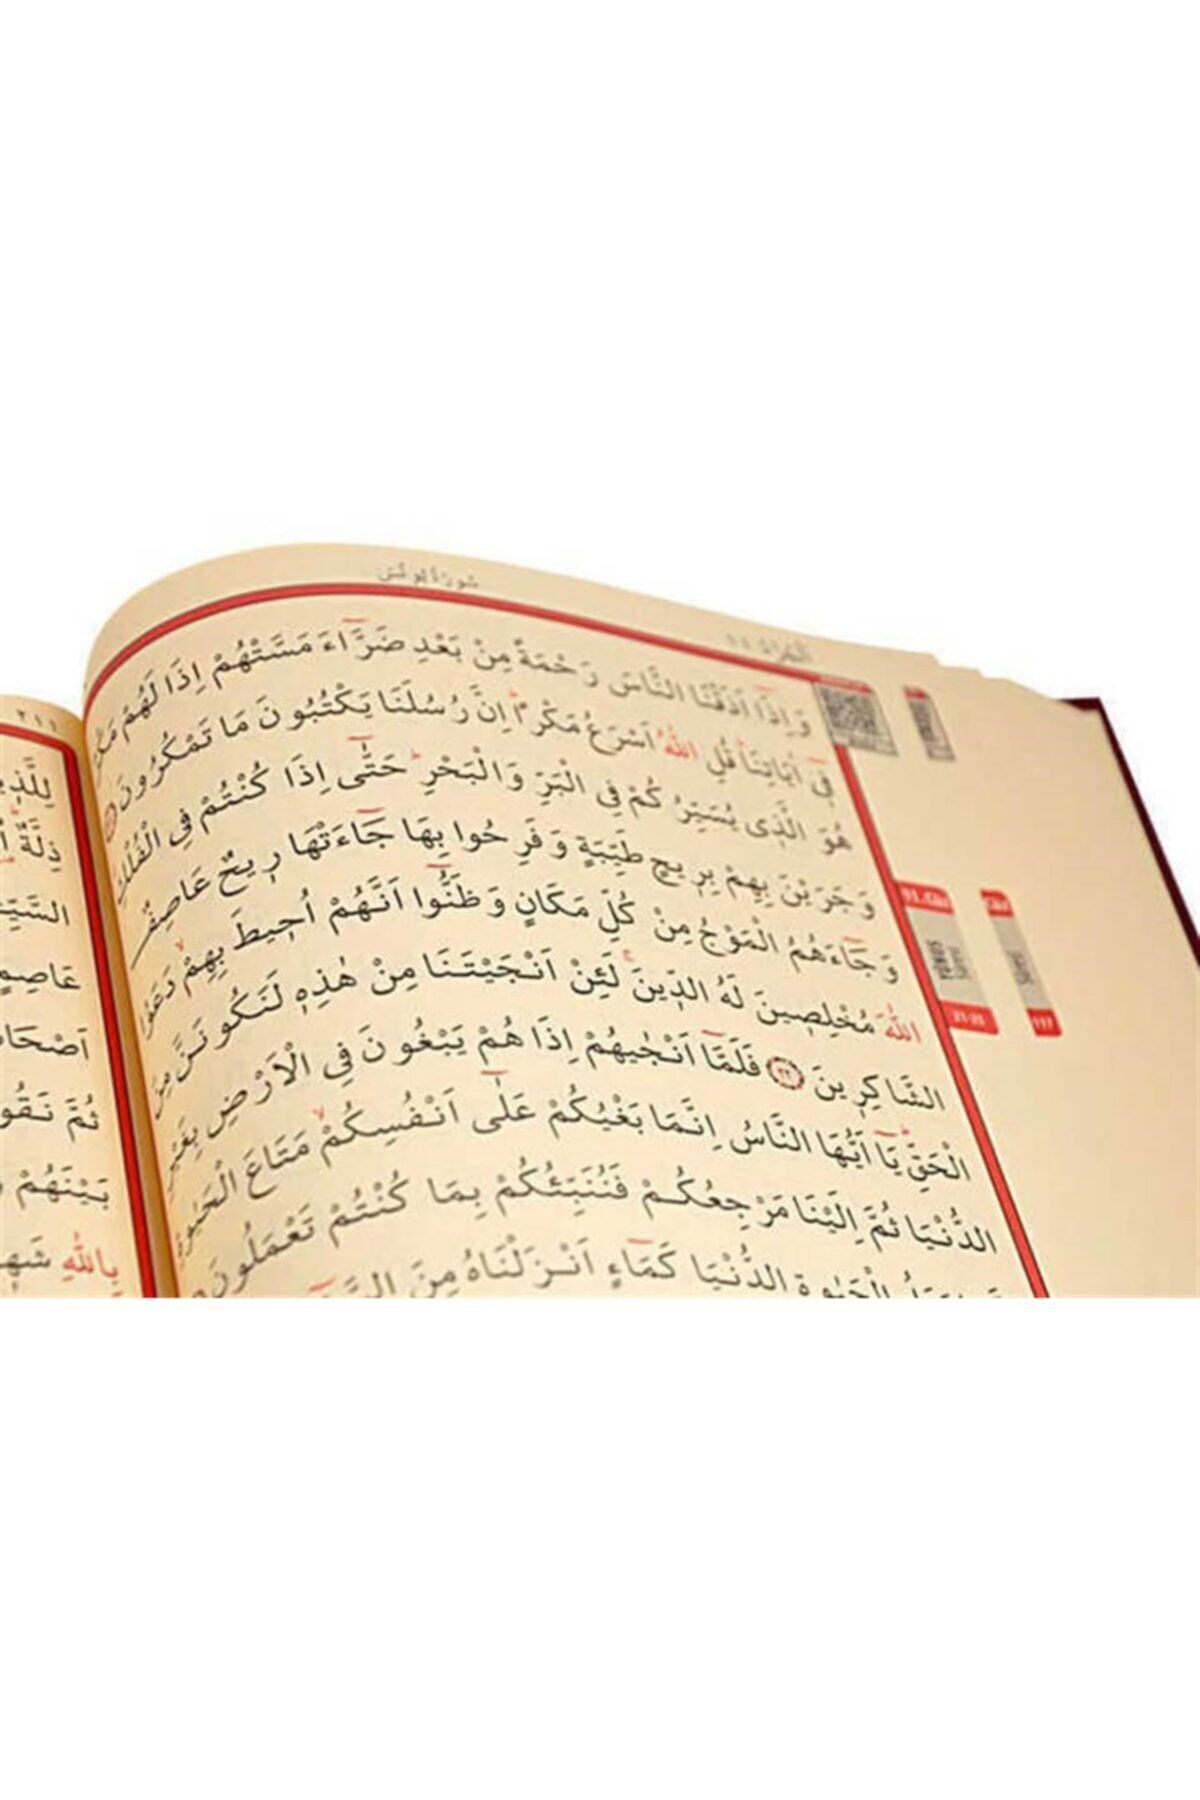 سورة يونس
الجزء ١١
وَاِذَٓا اَذَقْنَا النَّاسَ رَحْمَةً مِنْ بَعْدِ ضَرَّٓاءَ مَسَّتْهُمْ اِذَا لَهُمْ مَكْرٌ
فٓى اٰيَاتِنَا قُلِ اللّٰهُ اَسْرَعُ مَكْرًا اِنَّ رُسُلَنَا يَكْتُبُونَ مَا تَمْكُرُونَ
هُوَ الَّذى يُسَيِّرُكُمْ فِى الْبَرِّ وَالْبَحْرِ حَتّٰٓى اِذَا كُنْتُمْ فِى الْفُلْكِ
وَجَرَيْنَ بِهِمْ بِريحٍ طَيِّبَةٍ وَفَرِحُوا بِهَا جَٓاءَتْهَا ريحٌ عَاصِفٌ
وَجَٓاءَهُمُ الْمَوْجُ مِنْ كُلِّ مَكَانٍ وَظَنُّٓوا اَنَّهُمْ اُحيطَ بِهِمْ دَعَوُا
اللّٰهَ مُخْلِصينَ لَهُ الدّينَ لَئِنْ اَنْجَيْتَنَا مِنْ هٰذِه لَنَكُونَنَّ مِنَ
الشَّاكِرينَ ٢٢ فَلَمَّٓا اَنْجٰيهُمْ اِذَا هُمْ يَبْغُونَ فِى الْاَرْضِ بِغَيْرِ
الْحَقِّ يَٓا اَيُّهَا النَّاسُ اِنَّمَا بَغْيُكُمْ عَلٰٓى اَنْفُسِكُمْ مَتَاعَ الْحَيٰوةِ
الدُّنْيَا ثُمَّ اِلَيْنَا مَرْجِعُكُمْ فَنُنَبِّئُكُمْ بِمَا كُنْتُمْ تَعْمَلُونَ
الْحَيٰوةِ الدُّنْيَا كَمَٓاءٍ اَنْزَلْنَاهُ مِنَ
YUNUS
21-25
٢١١
لِلَّذينَ
ذِلَّةٌ
عَاصِمٍ
ثُمَّ نَقُو
بَيْنَهُمْ
بِاللّٰهِ